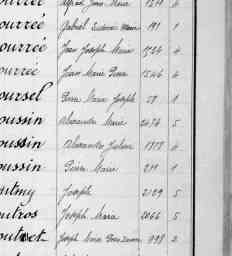 ourrée Alfred Jean Marie 1241 4
ourrée Gabriel Marie 191 1
ourrée Jean Joseph Marie 1544 4
ourrée Jean Marie Pierre 1546 4
oursel Pierre Marie Joseph 58 1
oussin Alexandre Marie 2474 5
oussin Alexandre Julien 1878 4
oussin Pierre Marie 211 1
outmy Joseph 2129 5
outros Joseph Marie 2066 5
Joseph 998 2